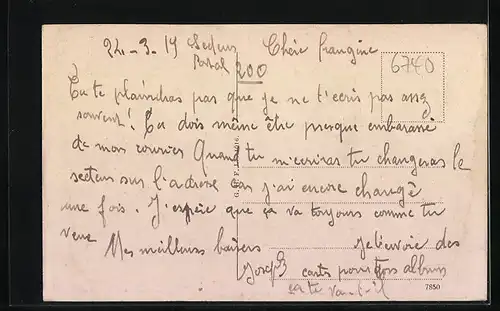 24-3-19 Secteur Chère frangine
Postal 200 6740
Tu te plaindras pas que je ne t'écris pas assez
souvent! Tu dois même être presque embarassé
de mon courrier Quand tu m'écriras tu changeras le
secteur sur l'adresse car j'ai encore changé
une fois. J'espère que ça va toujours comme tu
veux Mes meilleurs baisers Je t'envoie des
Joseph cartes pour ton album
ça te va-t-il
7850